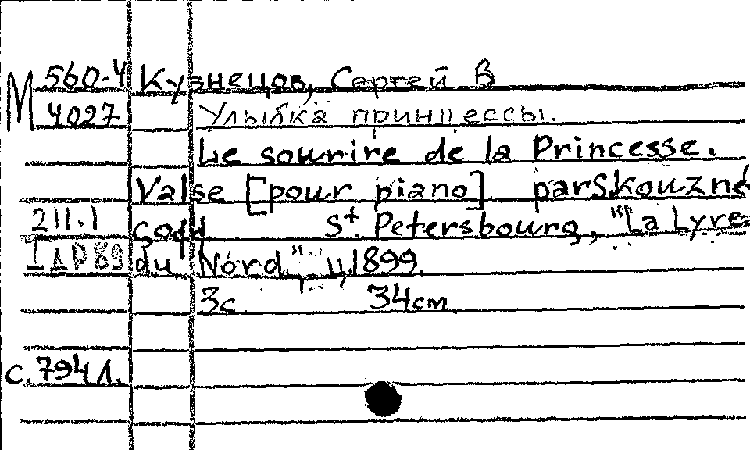 М 560-4 Кузнецов, Сергей В
4027 Улыбка принцессы.
Le sourire de la Princesse.
Valse [pour piano] par Skouzne
211.1 çoff St. Petersbourg, "La Lyre
du Nord", 1899.
3с. 34см
с.794л.